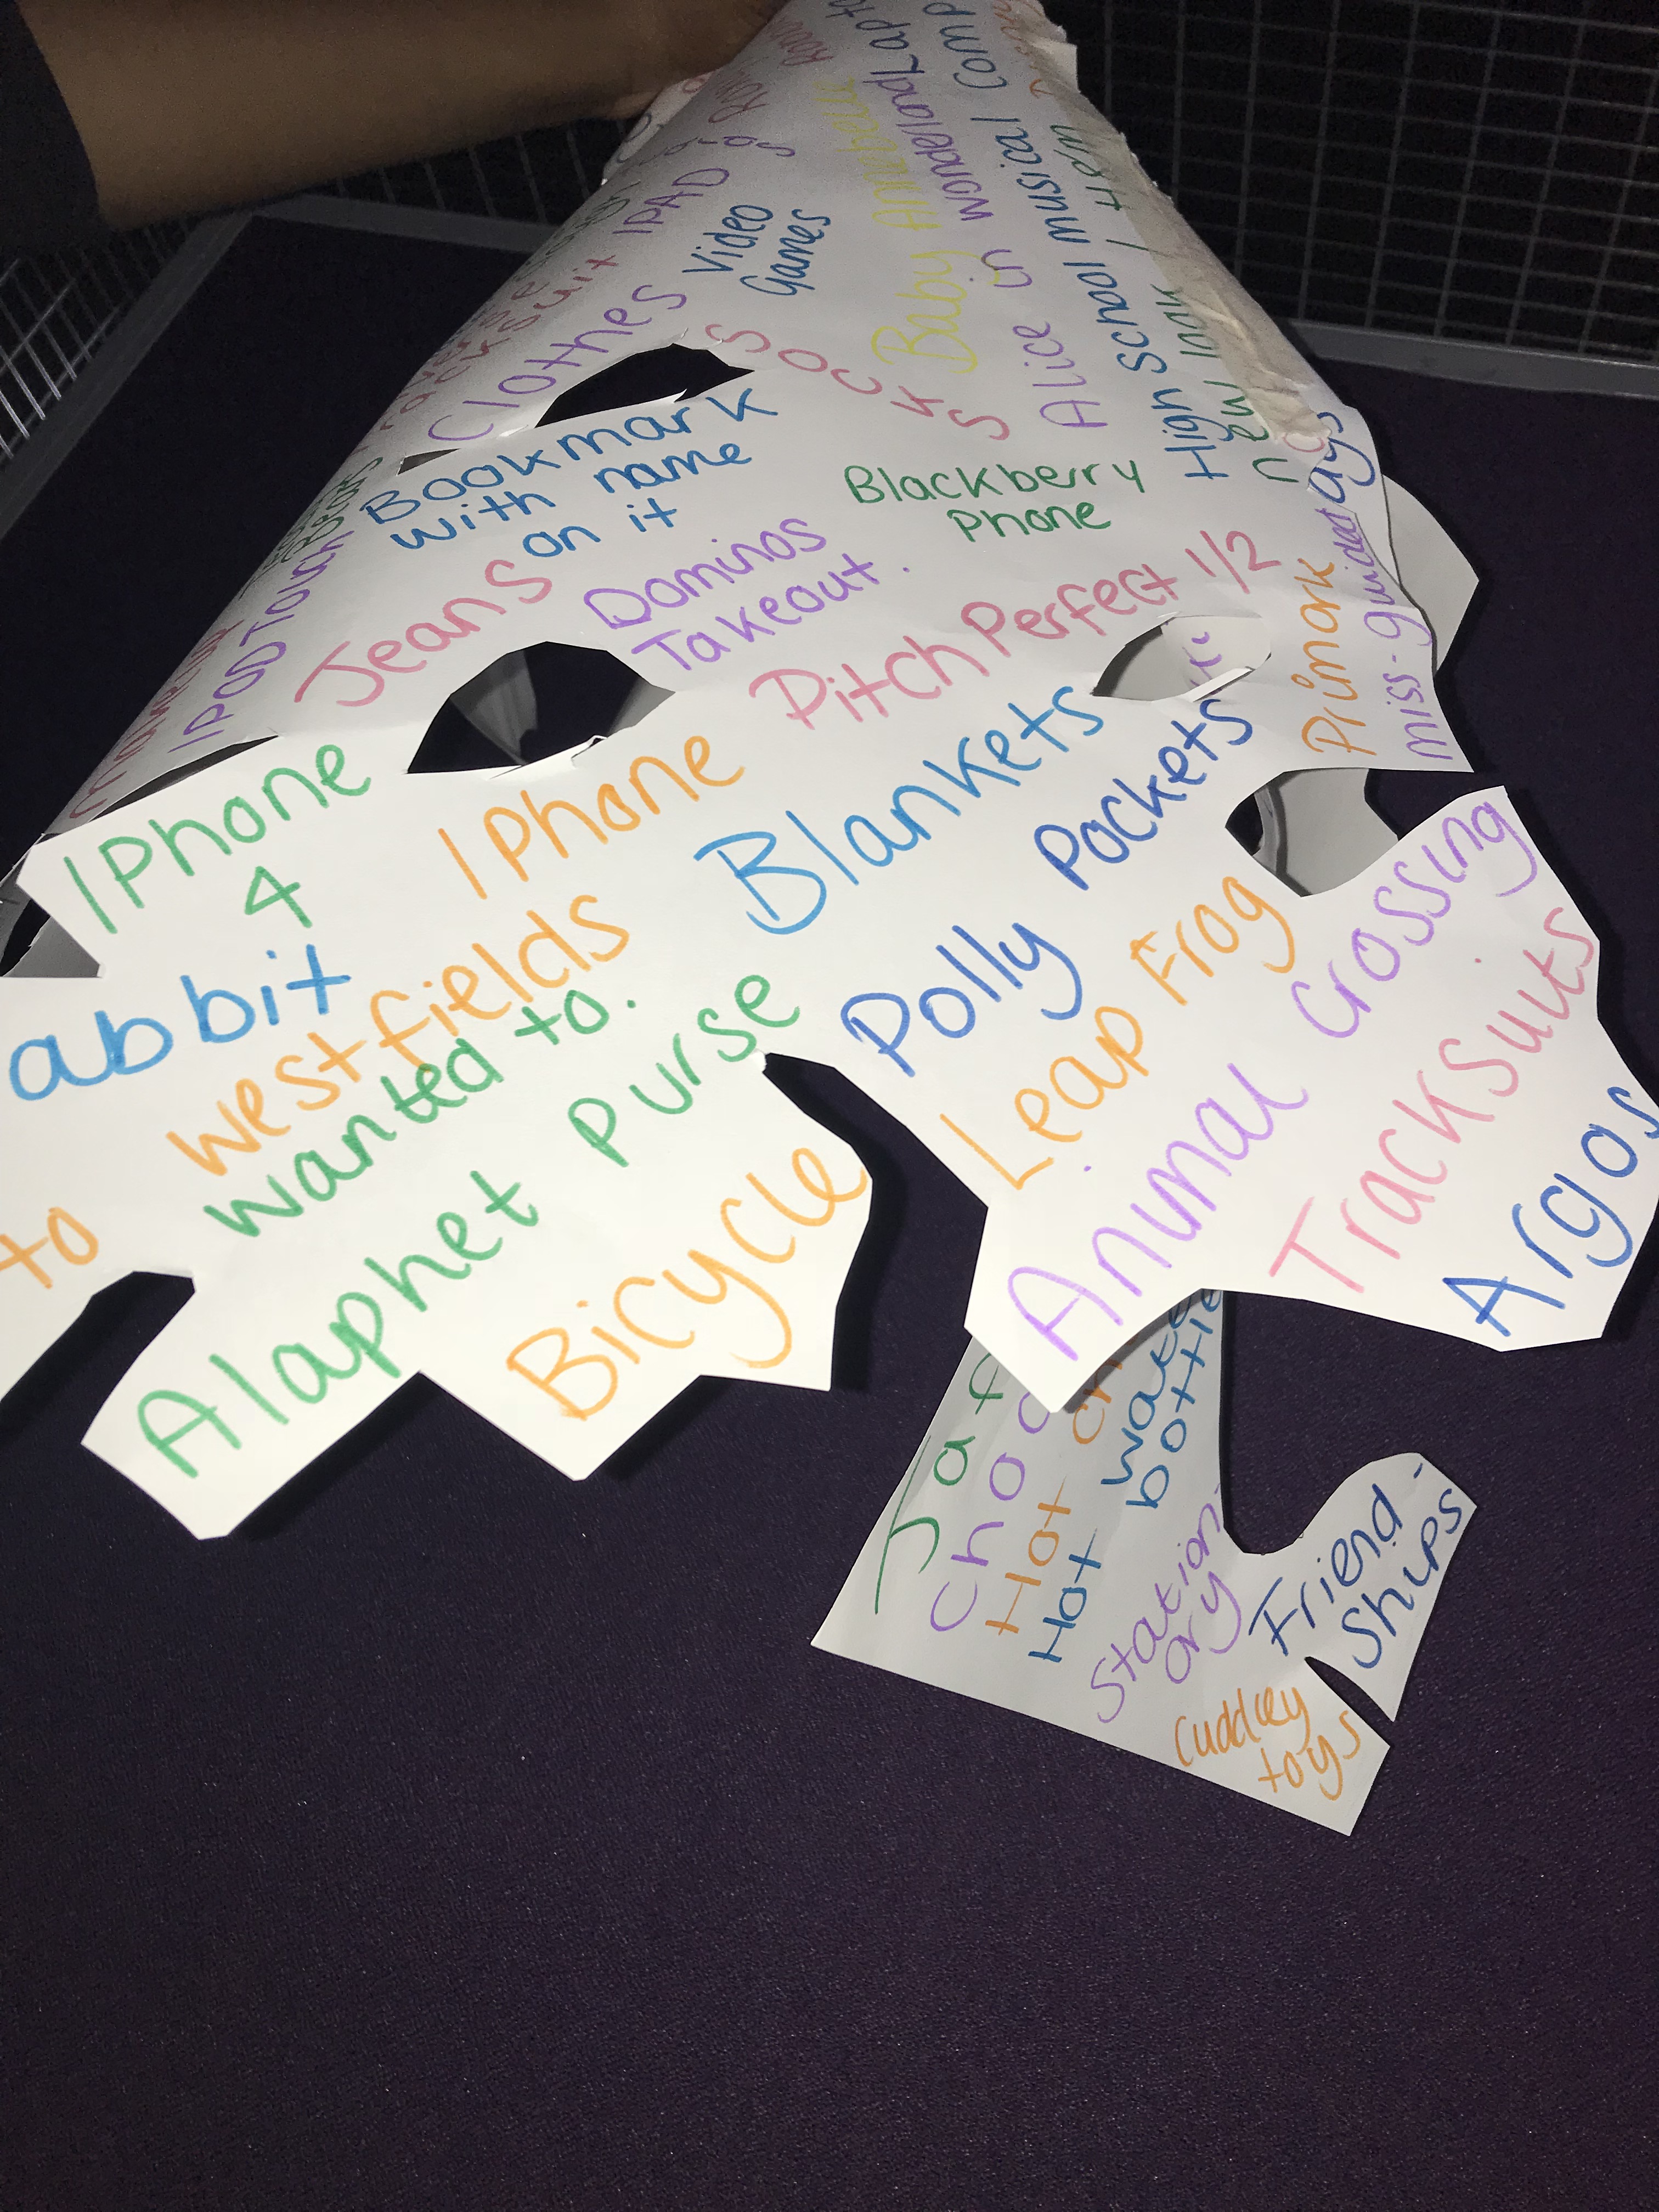 Video
Games
IPAD
Clothes
SOCKS
Baby Annabelle
Alice in wondeland
High school musical
new look
Bookmark
with name
on it
Blackberry
Phone
Dominos
Takeout.
Jeans
IPOD Touch
Pitch Perfect 1/2
Primark
miss-guided
IPhone
4
IPhone
Blankets
Polly Pockets
abbit
westfields
wanted to.
Leap Frog
Animal crossing
Tracksuits
Argos
to
Alaphet purse
Bicycle
Hot
Hot wate
bottle
Station-
ary
Friend-
Ships
Cuddley
toys